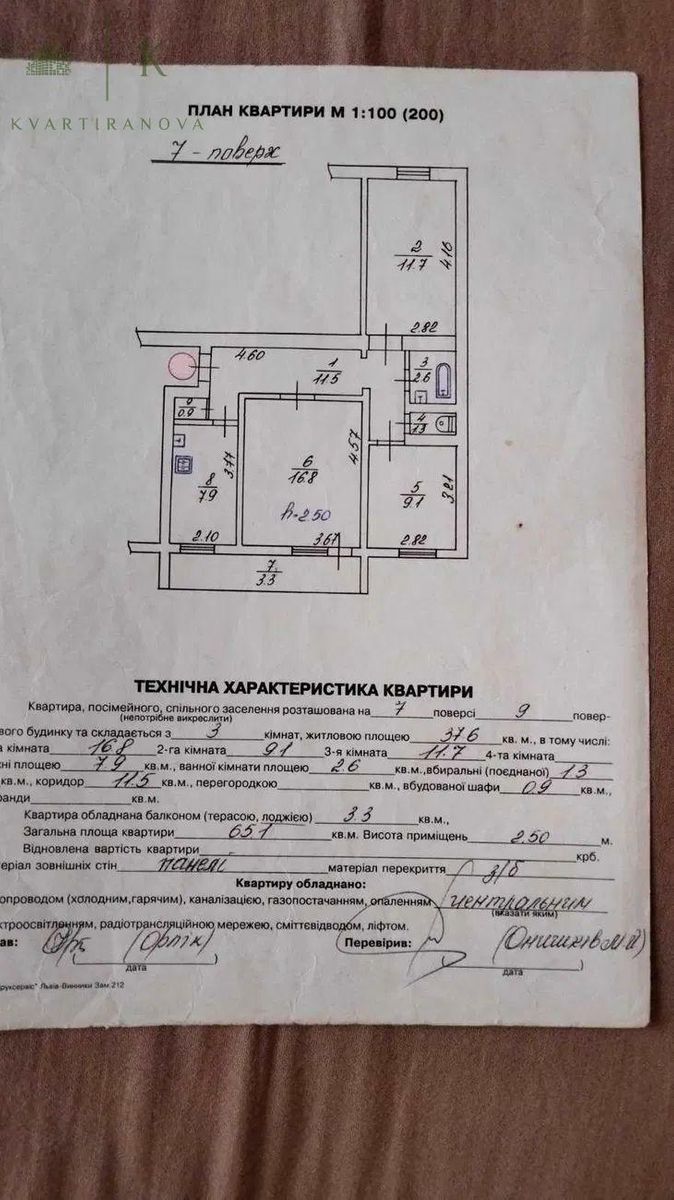 K
KVARTIRANOVA
ПЛАН КВАРТИРИ М 1:100 (200)
7 - поверх
2
11.7
4.16
2.82
4.60
1
11.5
3
2.6
9
0.9
4
1.3
4.57
3.77
6
16.8
8
7.9
5
9.1
3.21
h=2.50
2.10
3.67
2.82
7
3.3
ТЕХНІЧНА ХАРАКТЕРИСТИКА КВАРТИРИ
Квартира, посімейного, спільного заселення розташована на 7 поверсі 9 повер-
(непотрібне викреслити)
вого будинку та складається з 3 кімнат, житловою площею 37.6 кв. м., в тому числі:
а кімната 16.8 2-га кімната 9.1 3-я кімната 11.7 4-та кімната
ні площею 7.9 кв.м., ванної кімнати площею 2.6 кв.м.,вбиральні (поєднаної) 1.3
кв.м., коридор 11.5 кв.м., перегородкою кв.м., вбудованої шафи 0.9 кв.м.,
ранди кв.м.
Квартира обладнана балконом (терасою, лоджією) 3.3 кв.м.,
Загальна площа квартири 65.1 кв.м. Висота приміщень 2.50 м.
Відновлена вартість квартири крб.
теріал зовнішніх стін панелі матеріал перекриття з/б
Квартиру обладнано:
опроводом (холодним,гарячим), каналізацією, газопостачанням, опаленням центральним
(вказати яким)
ктроосвітленням, радіотрансляційною мережею, сміттєвідводом, ліфтом.
ав: (Орлік) Перевірив: (Онишків М Й)
дата дата
руксервіс" Львів-Винники Зам.212